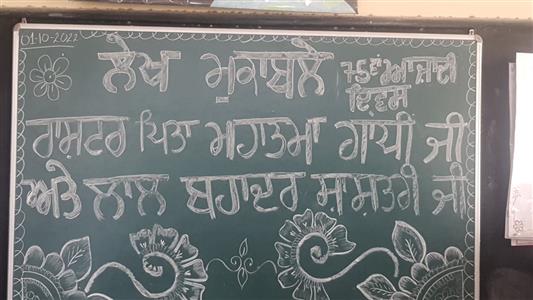 01-10-2022
ਲੇਖ ਮੁਕਾਬਲੇ 75ਵਾਂ ਅਜ਼ਾਦੀ
ਦਿਵਸ
ਰਾਸ਼ਟਰ ਪਿਤਾ ਮਹਾਤਮਾ ਗਾਂਧੀ ਜੀ
ਅਤੇ ਲਾਲ ਬਹਾਦਰ ਸ਼ਾਸ਼ਤਰੀ ਜੀ